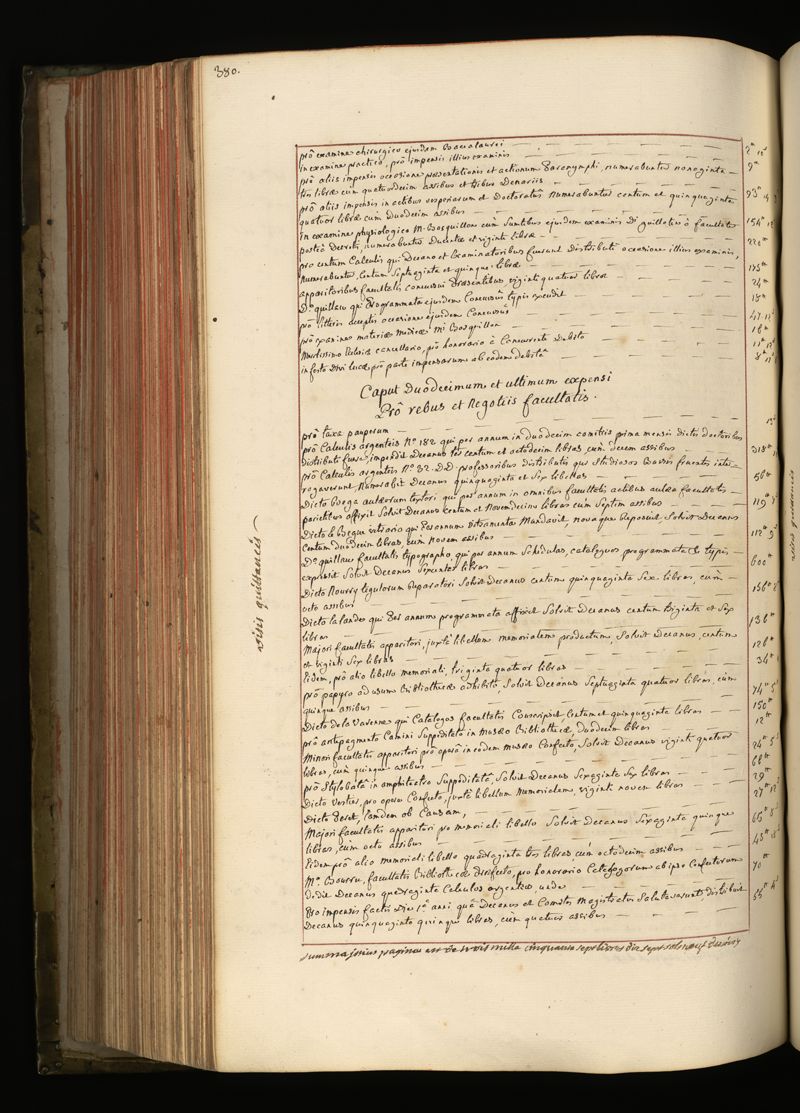 380.
prô examine chirurgico ejusdem Baccalaurei
in examine practico, prô impensis illius examinis
prô aliis impensis occasione præsentationis et actionum Paranymphi numerabuntur nonaginta
tres libræ cum quatuordecim assibus et tribus Denariis
prô aliis impensis in actibus vesperiarum et Doctoratûs numerabuntur centum et quinquaginta
quatuor libræ cum Duodecim assibus
in examine physiologico M. Bosquillon cum sumtibus ejusdem examinis Di Guillotin â facultate
postea Decreti, numerabuntur Ducentæ et viginti libræ
pro centum Calculis qui Decano et Examinatoribus fuerunt Distributi occasione illius examinis,
numerabuntur Centum Septuaginta et quinque libræ
apparitoribus facultatis concursui Præsentibus viginti quatuor libræ
Do. quillau qui Programmata ejusdem Concursûs typis excudit
prô litteris acceptis occasione ejusdem Concursus
prô examine materiæ medicæ Mi Bosquillon
Illustissimo Ecclesiæ cancellario, prô honorario â Concurrente Debito
in festo Divi Lucæ prô parte impensarum ab eodem debitâ
Caput Duodecimum et ultimum expensi
Prô rebus et Negotiis facultatis.
prô taxa pauperum
prô Calculis argenteis No. 182 qui per annum in duodecim comitiis prima mensis dictis doctoribus
distributi fuere, impendit Decanus ter centum et octodecim libras, cum decem assibus
prô Calculis argenteis No. 32. DD. professoribus distributis qui Studiosos Cursûs frenatos inter-
rogaverunt, Numerabit Decanus quinquaginta et Sex libellas
Dicto Bosga aulæorum textori qui per annum in omnibus facultatis actibus aulæa facultatis
parietibus affixit Solvit Decanus centum et Novemdecim libras cum Septem assibus
Dicto le Begue vitrario qui Per annum vitramenta Mundavit, nova que Reposuit Solvit Decanus
Centum duodecim libras, cum Novem assibus
Do. quillau facultatis typographo, qui per annum Schedulas, catalogos programmata &c typis
expressit Solvit Decanus Sexcentas libras
Dicto Nourry ligulorum Reparatori Solvit Decanus centum quinquaginta Sex libras, cum
octo assibus
Dicto la lande qui Per annum programmata affixit Solvit Decanus centum triginta et Sex
libras
Majori facultatis apparitori, juxtà libellum memorialem productum, Solvit Decanus, centum
et viginti Sex libras
Eidem, prô alio libello memoriali, triginta quatuor libras
prô papyro ad usum Bibliothecæ adhibitâ, Solvit Decanus Septuaginta quatuor libras, cum
quinque assibus
Dicto de la Varenne qui Catalogos facultatis Conscripsit Centum et quinquaginta libras
prô antepagmento Camini Suppeditato in Musæo Bibliothecæ, Duodecim libras
Minori facultatis apparitori prô operâ in eodem musæo Confecto, Solvit Decanus viginti quatuor
libras, cum quinque assibus
prô Stylobatâ in amphiteatro Suppeditatâ, Solvit Decanus Sexaginta Sex libras
Dicto Vestier, pro opere Confecto, juxtà libellum Memorialem, viginti novem libras
Dicto Peret, Eamdem ob Causam,
Majori facultatis apparitori pro memoriali libello Solvit Decanus Sexaginta quinque
libras, cum octo assibus
Eidem prô alio memoriali libello quadraginta tres libras cum octodecim assibus
Mo. Bourru, facultatis Bibliothecæ Præfecto, pro honorario Catalogorum ab ipso Confectorum
dedit Decanus quadraginta Calculos argenteos, unde
Pro impensis factis Die 1a. anni quâ Decanus et Comites Magistratus Salutaverunt distribuit
Decanus quinquaginta quinque libras, cum quatuor assibus
summa istius paginæ est de trois mille cinquante sept livres dix sept sols neuf deniers
visis quittanciis